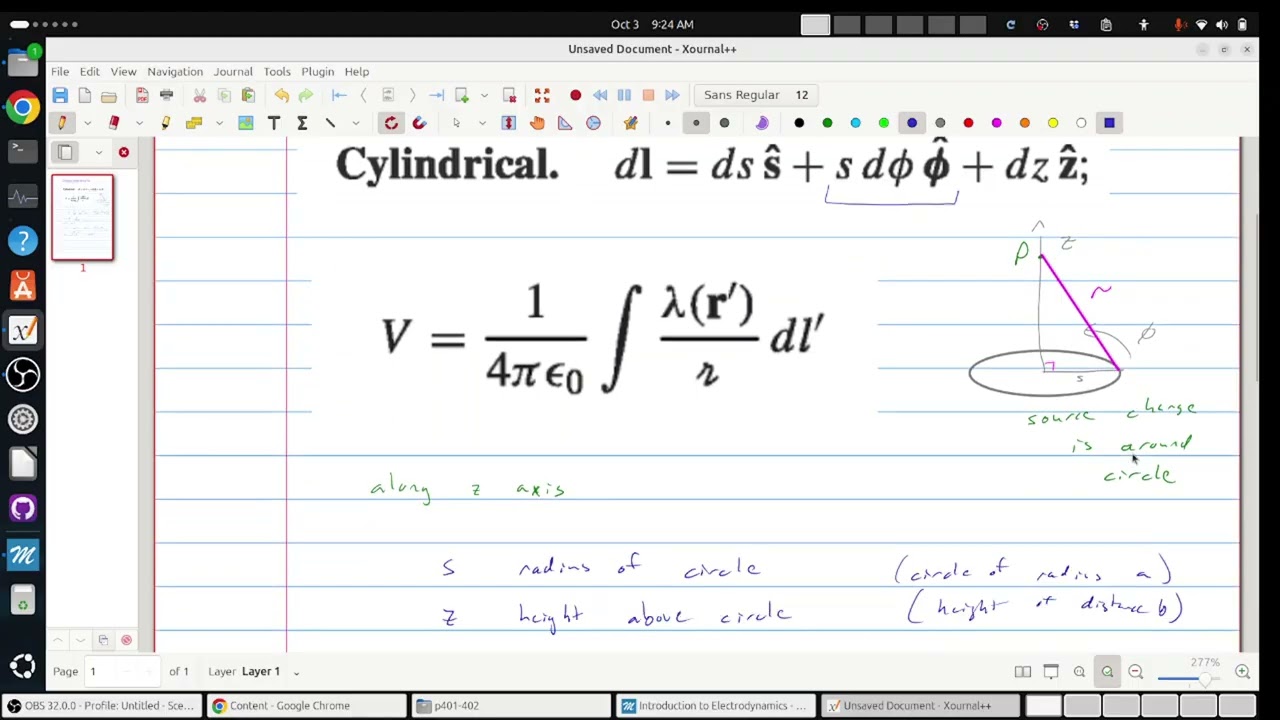 Oct 3 9:24 AM
Unsaved Document - Xournal++
File Edit View Navigation Journal Tools Plugin Help
Sans Regular 12
1
Cylindrical. dl = ds ŝ + s dϕ ϕ̂ + dz ẑ;
z
P
r
ϕ
s
V = 1/4πϵ₀ ∫ λ(r′)/r dl′
source charge
is around
circle
along z axis
s radius of circle (circle of radius a)
z height above circle (height of distance b)
Page 1 of 1 Layer Layer 1
277%
OBS 32.0.0 - Profile: Untitled - Sce...
Content - Google Chrome
p401-402
Introduction to Electrodynamics - ...
Unsaved Document - Xournal++